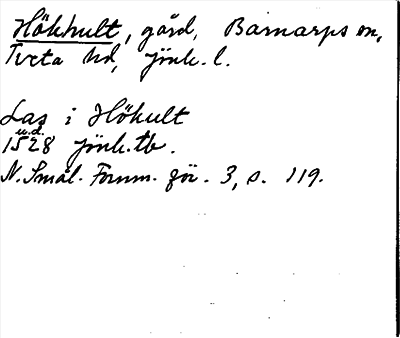 Hökhult, gård, Barnarps sn,
Tveta hd, Jönk. l.
Las i Hökult
u.d.
1528 Jönk. tb.
N. Smål. Fornm. för. 3, s. 119.